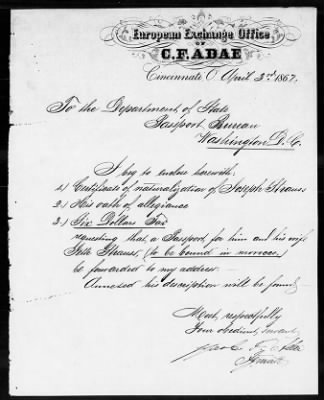 European Exchange Office
OF
C.F. ADAE
Cincinnati O. April 3rd 1867.
To the Department of State
Passport Bureau
Washington D.C.
I beg to enclose herewith:
1.) Certificate of naturalization of Joseph Strauss
2.) His oath of allegiance
3.) Six Dollars Tax
requesting that a Passport for him and his wife
Strauss, (to be bound in morocco)
be forwarded to my address
Annexed his description will be found
Most respectfully
Your obedient servant